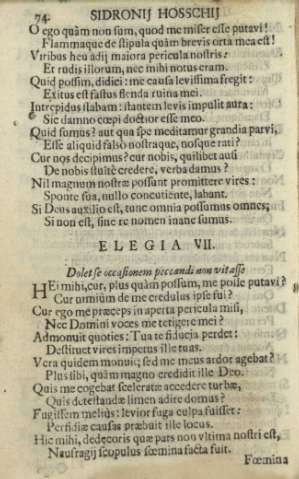 74. SIDRONIJ HOSSCHIJ
O ego quàm non sum, quod me miser esse putavi!
Flammaque de stipula quàm brevis orta mea est!
Viribus heu adij maiora pericula nostris:
Et rudis illorum, nec mihi notus eram.
Quid possim, didici: me causa levissima fregit:
Exitus est fastus flenda ruina mei.
Intrepidus stabam: stantem levis impulit aura:
Sic damno cœpi doctior esse meo.
Quid sumus? aut qua spe meditamur grandia parvi,
Esse aliquid falsò nostraque, nosque rati?
Cur nos decipimus? cur nobis, quilibet ausi
De nobis stultè credere, verba damus?
Nil magnum nostræ possunt promittere vires:
Sponte sua, nullo concutiente, labant.
Si Deus auxilio est, tunc omnia possumus omnes;
Si non est, sine re nomen inane sumus.
ELEGIA VII.
Dolet se occasionem peccandi non vitasse
HEi mihi, cur, plus quàm possum, me posse putavi?
Cur urnium de me credulus ipse fui?
Cur ego me præceps in aperta pericula misi,
Nec Domini voces me tetigere mei?
Admonuit quoties: Tua te fiducia perdet:
Destituet vires impetus ille tuas.
Vera quidem monuit; sed me meus ardor agebat?
Plus sibi, quàm magno credidit ille Deo.
Quis me cogebat sceleratæ accedere turbæ,
Quis detestandæ limen adire domus?
Fugissem meliùs: levior fuga culpa fuisset:
Perfidiæ causas præbuit ille locus.
Hic mihi, dedecoris quæ pars non vltima nostri est,
Naufragij scopulus fœmina facta fuit.
Fœmina